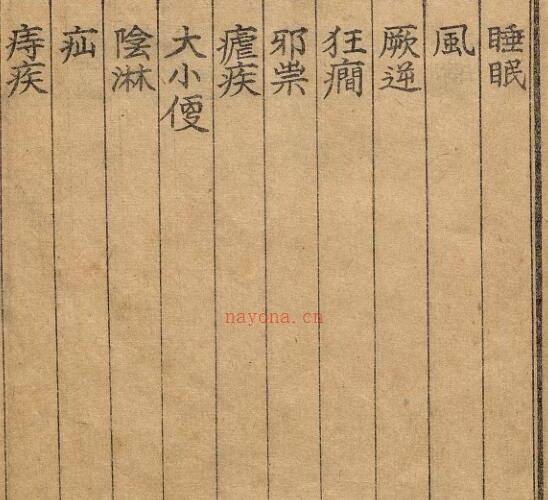 睡眠
風
厥逆
狂癇
邪祟
瘧疾
大小便
陰淋
疝
痔疾
nayona.cn